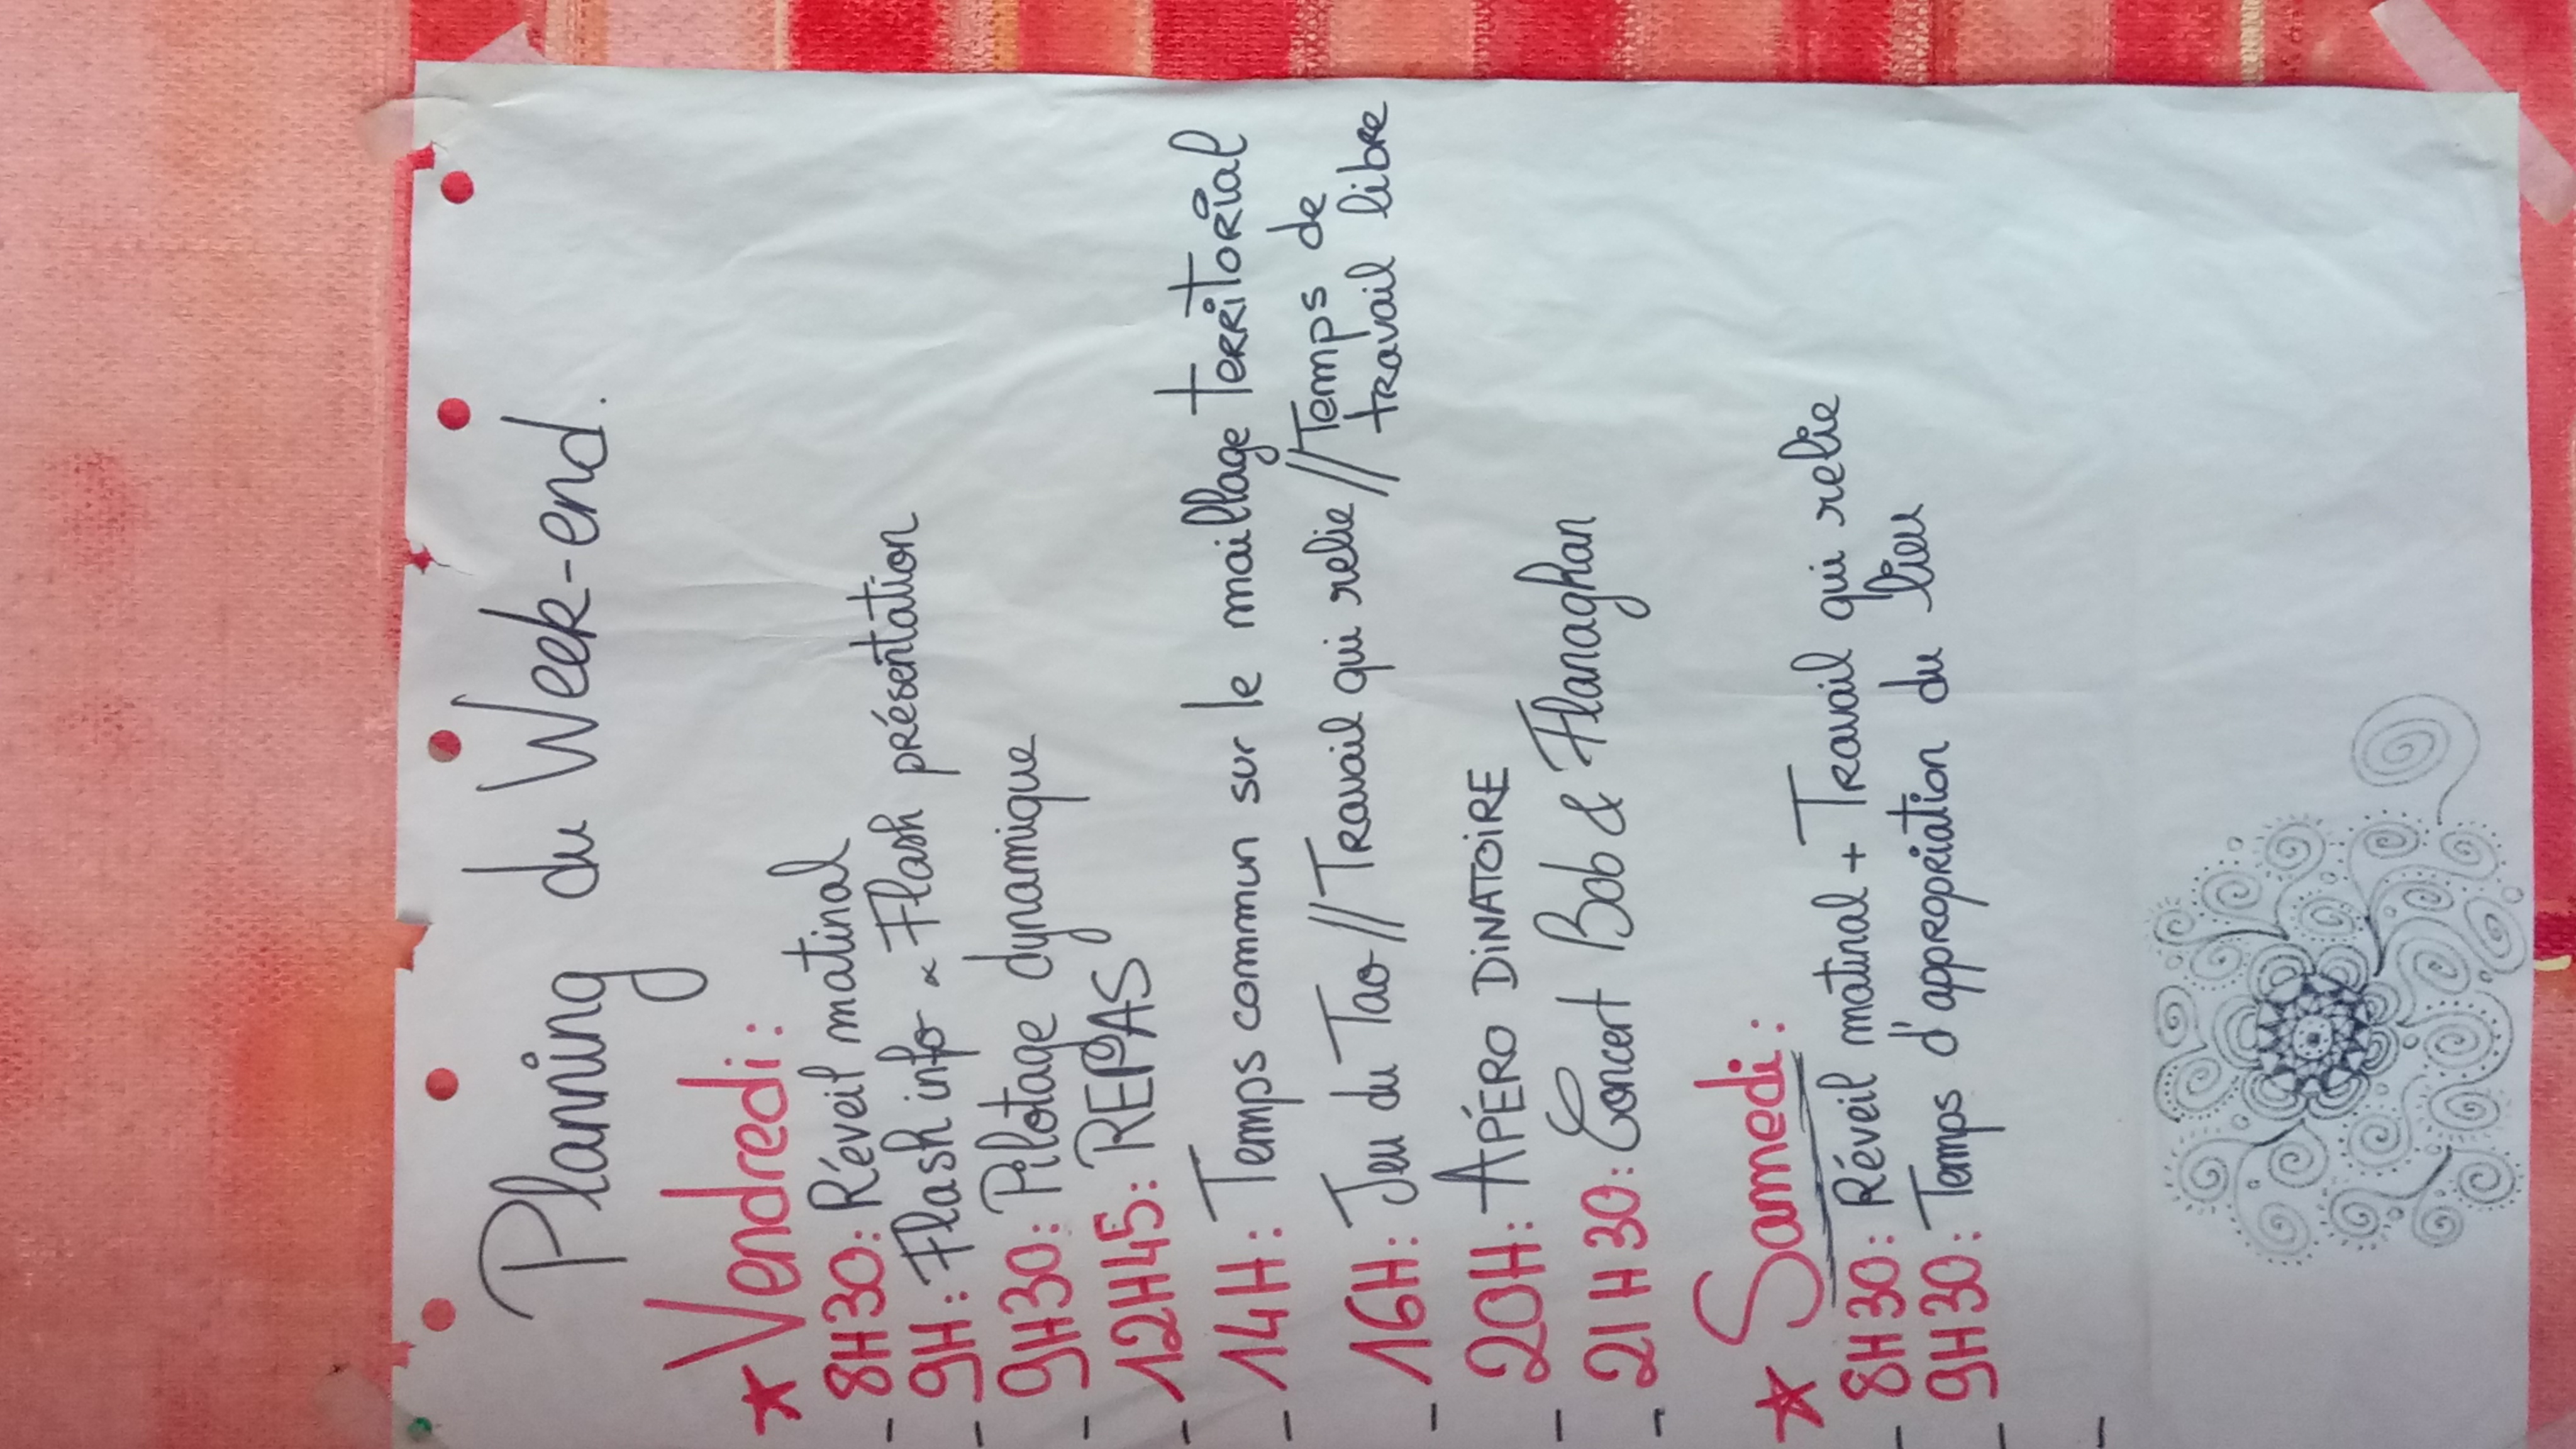 Planning du Week-end.
★ Vendredi:
- 8H30: Réveil matinal
- 9H: Flash info & Flash présentation
- 9H30: Pilotage dynamique
- 12H45: REPAS
- 14H: Temps commun sur le maillage territorial
- 16H: Jeu du Tao // Travail qui relie // Temps de
travail libre
- 20H: APÉRO DINATOIRE
- 21H30: Concert Bob & Flanaghan
★ Samedi:
- 8H30: Réveil matinal + Travail qui relie
- 9H30: Temps d'appropriation du lieu
-